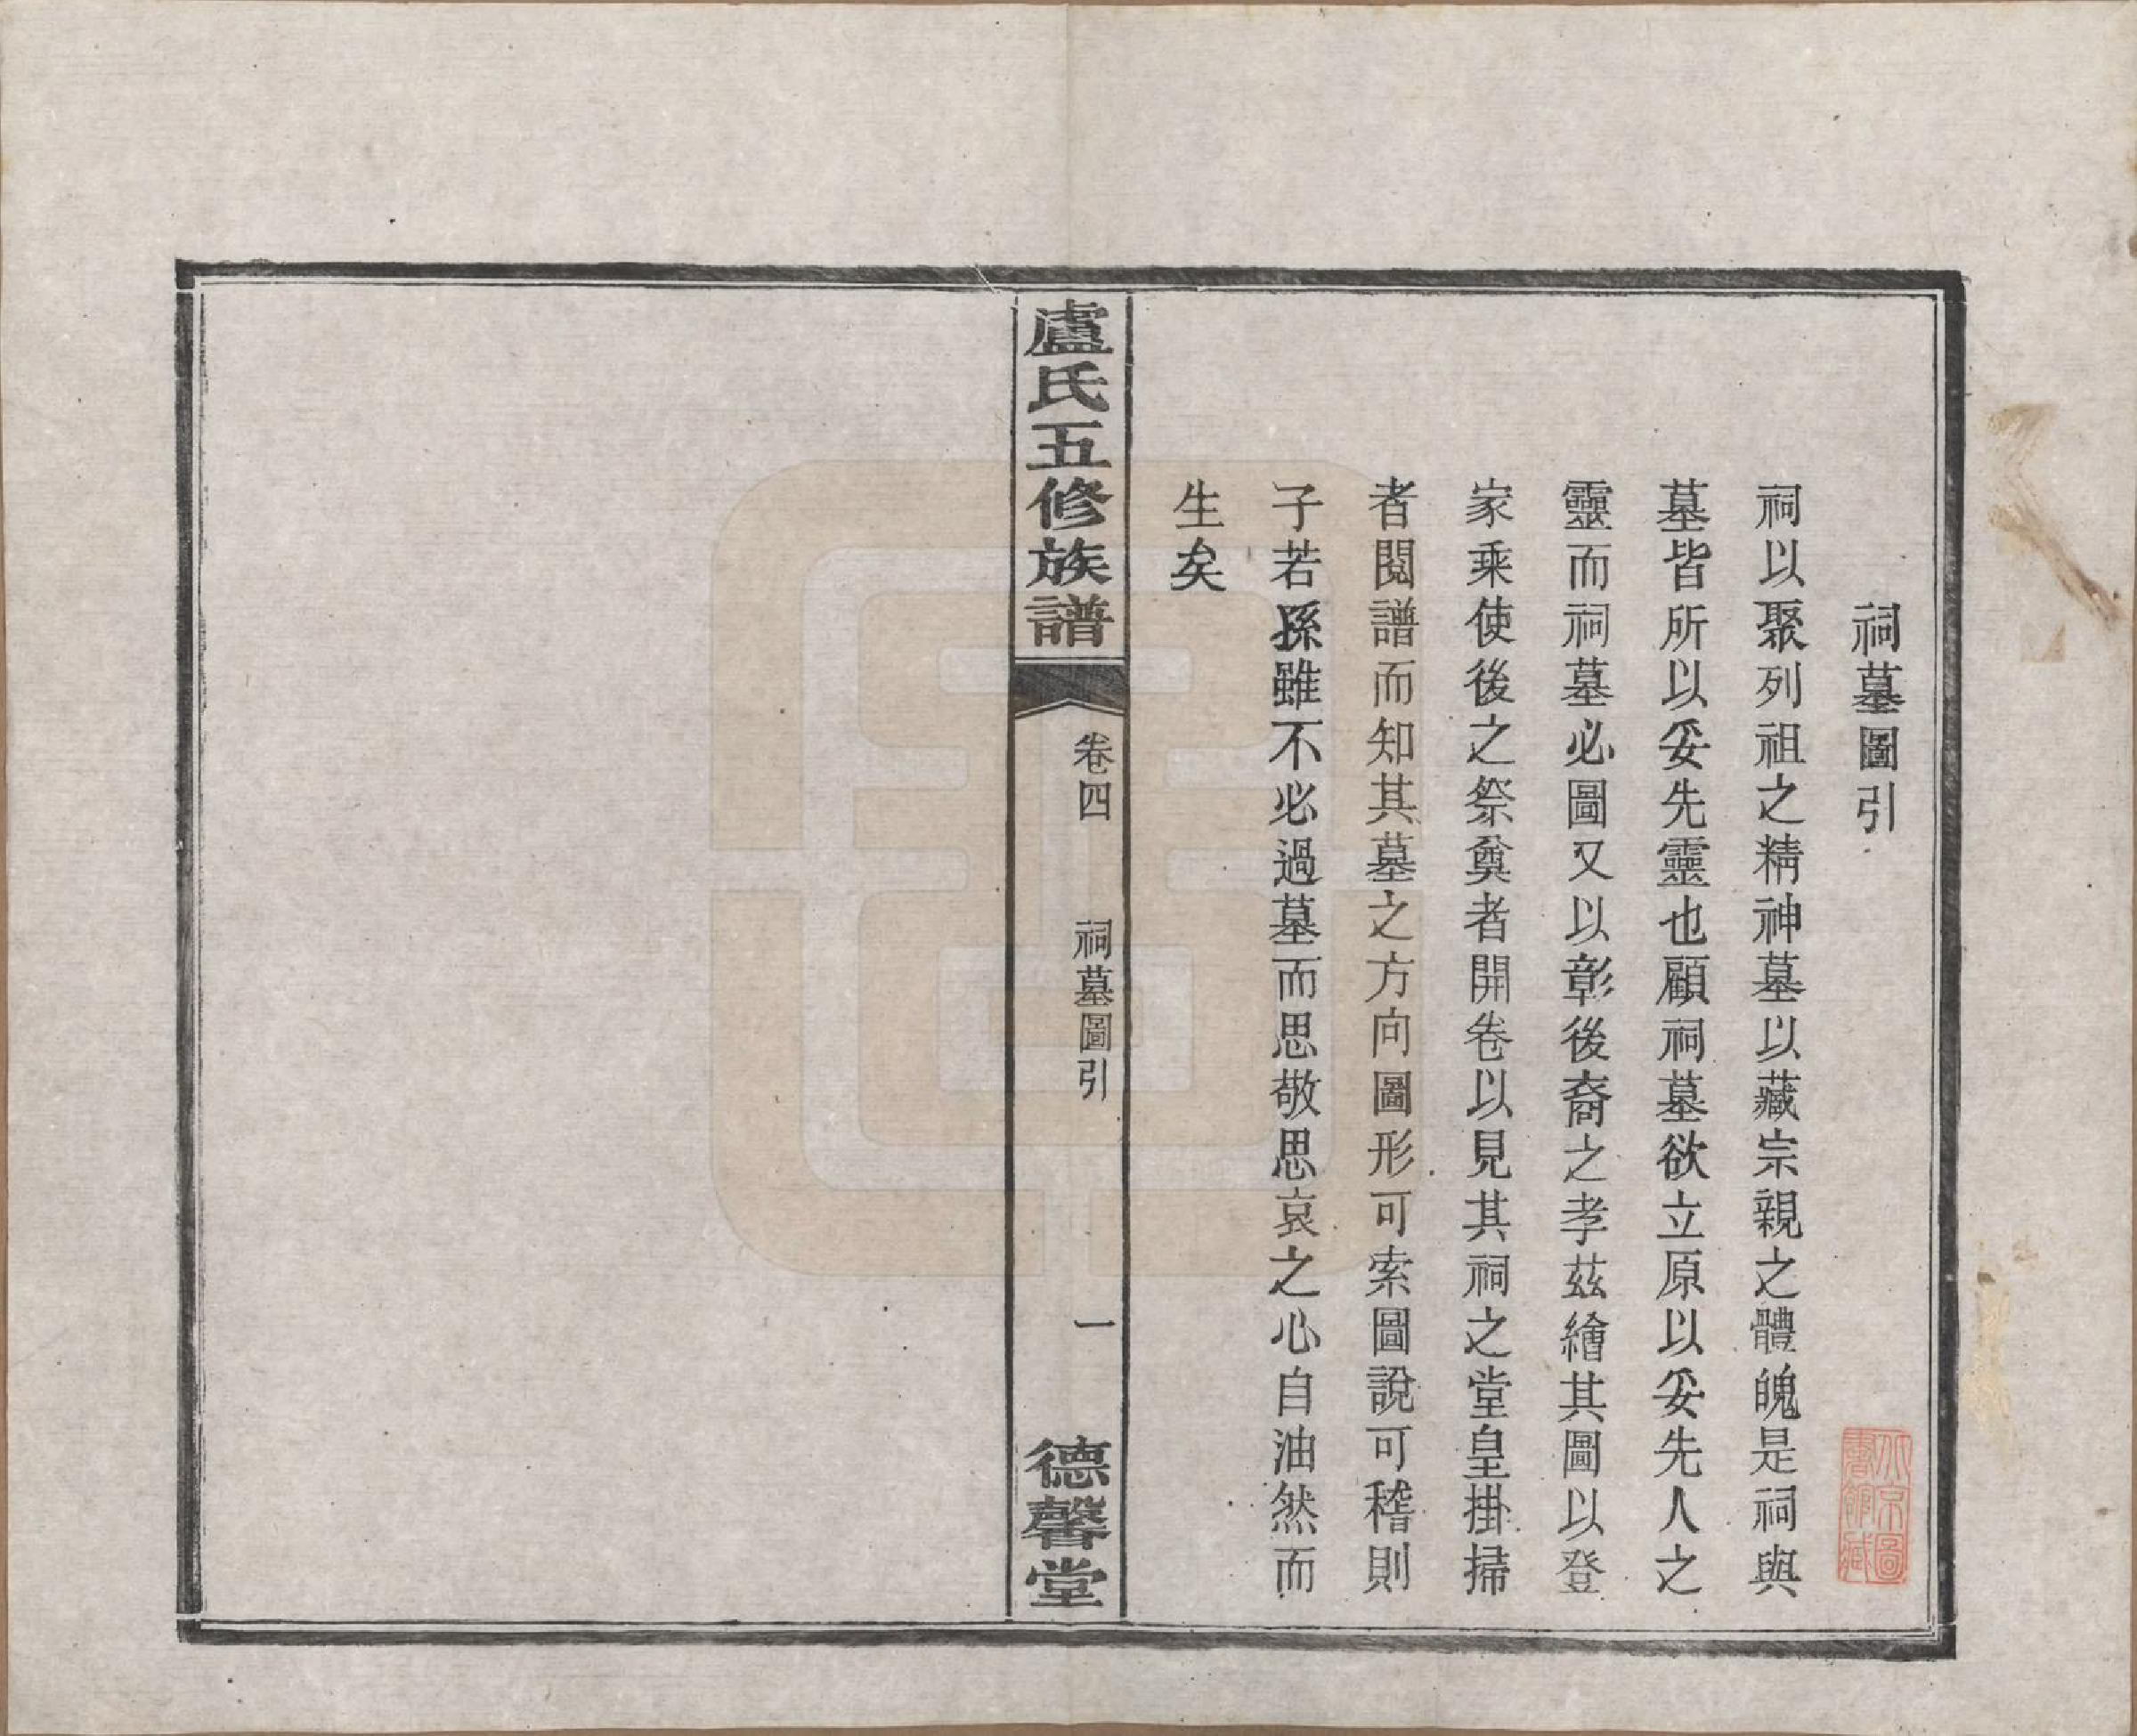 祠墓圖引
祠以聚列祖之精神墓以藏宗親之體魄是祠與
墓皆所以妥先靈也顧祠墓欲立原以妥先人之
靈而祠墓必圖又以彰後裔之孝茲繪其圖以登
家乘使後之祭奠者開卷以見其祠之堂皇掛掃
者閱譜而知其墓之方向圖形可索圖說可稽則
子若孫雖不必過墓而思敬思哀之心自油然而
生矣
盧氏五修族譜
卷四
祠墓圖引
一
德馨堂
北京圖
書館藏